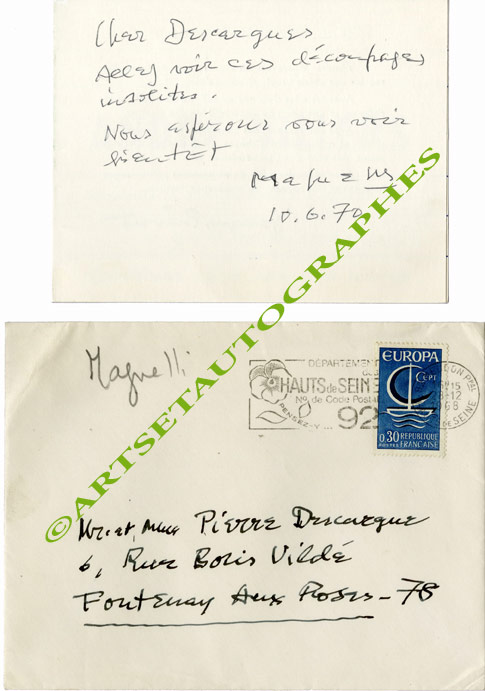 Cher Descargues
Allez voir ces découpages
insolites.
Nous espérons vous voir
bientôt
Magnelli
10.6.70
©ARTSETAUTOGRAPHES
Magnelli
DÉPARTEMENT
HAUTS de SEINE
No de Code Postal
PENSEZ-Y...
92
EUROPA
CEPT
0,30 REPUBLIQUE
POSTES FRANÇAISE
15
-12
1968
de SEINE
Mr. et Mme Pierre Descargue
6, Rue Boris Vildé
Fontenay Aux Roses - 78